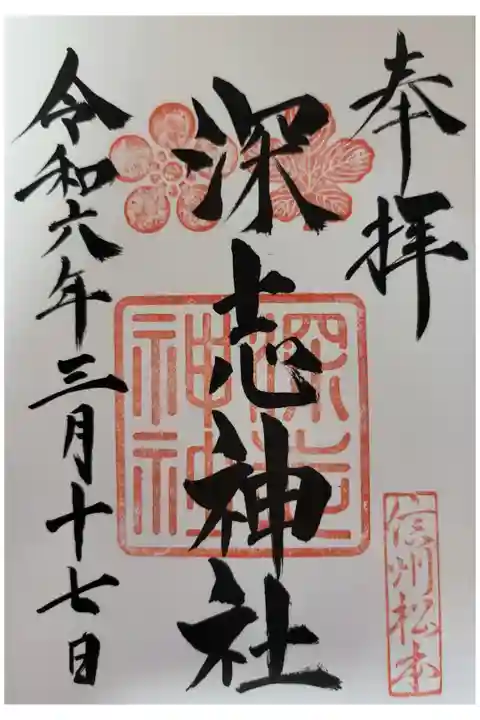 奉拝
深志神社
深志神社
信州松本
令和六年三月十七日